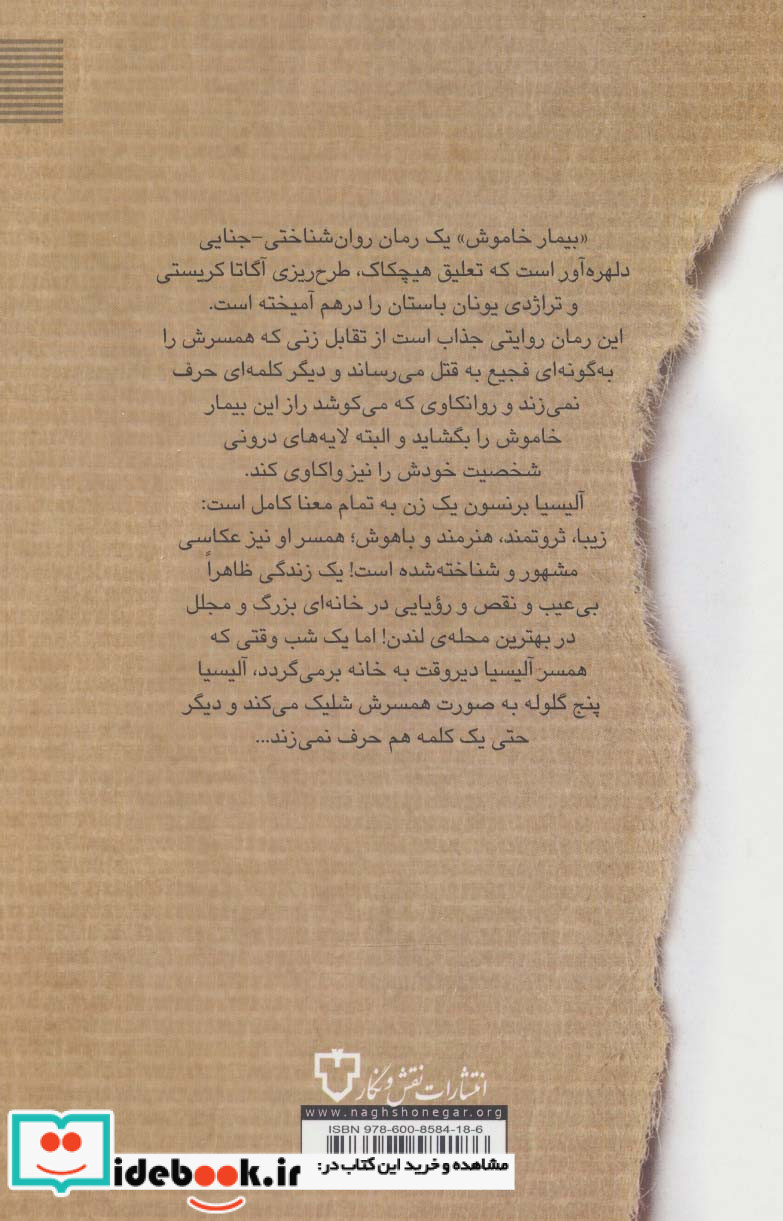 «بیمار خاموش» یک رمان روان‌شناختی-جنایی
دلهره‌آور است که تعلیق هیچکاک، طرح‌ریزی آگاتا کریستی
و تراژدی یونان باستان را درهم آمیخته است.
این رمان روایتی جذاب است از تقابل زنی که همسرش را
به‌گونه‌ای فجیع به قتل می‌رساند و دیگر کلمه‌ای حرف
نمی‌زند و روانکاوی که می‌کوشد راز این بیمار
خاموش را بگشاید و البته لایه‌های درونی
شخصیت خودش را نیز واکاوی کند.
آلیسیا برنسون یک زن به تمام معنا کامل است:
زیبا، ثروتمند، هنرمند و باهوش؛ همسر او نیز عکاسی
مشهور و شناخته‌شده است! یک زندگی ظاهراً
بی‌عیب و نقص و رؤیایی در خانه‌ای بزرگ و مجلل
در بهترین محله‌ی لندن! اما یک شب وقتی که
همسر آلیسیا دیروقت به خانه برمی‌گردد، آلیسیا
پنج گلوله به صورت همسرش شلیک می‌کند و دیگر
حتی یک کلمه هم حرف نمی‌زند...
انتشارات نقش و نگار
www.naghshonegar.org
ISBN 978-600-8584-18-6
مشاهده و خرید این کتاب در:
idebook.ir